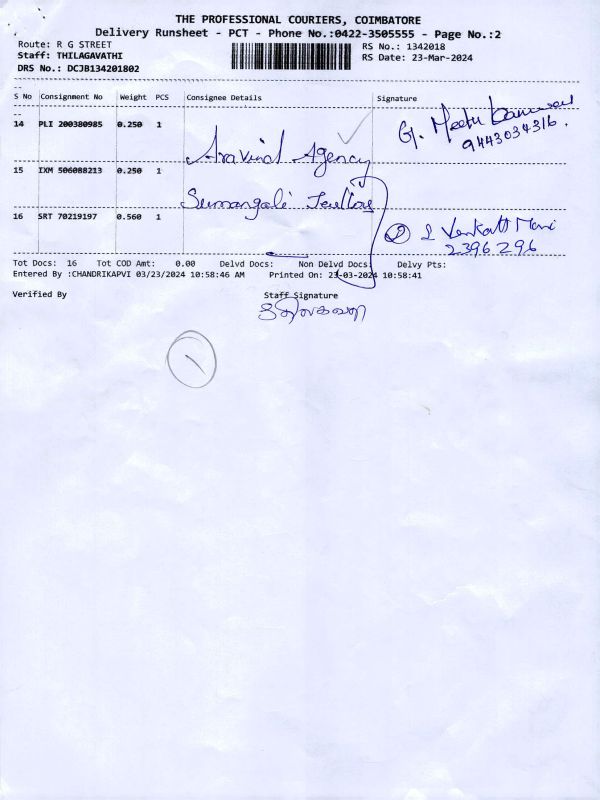 THE PROFESSIONAL COURIERS, COIMBATORE
Delivery Runsheet - PCT - Phone No.:0422-3505555 - Page No.:2
Route: R G STREET
RS No.: 1342018
Staff: THILAGAVATHI
RS Date: 23-Mar-2024
DRS No.: DCJB134201802
S No Consignment No Weight PCS Consignee Details Signature
14 PLI 200380985 0.250 1 Aravind Agency G. Meetu
9443034316.
15 IXM 506088213 0.250 1
Sumangali
16 SRT 70219197 0.560 1 2 L Venkatt Mani
2396296
Tot Docs: 16 Tot COD Amt: 0.00 Delvd Docs: Non Delvd Docs: Delvy Pts:
Entered By :CHANDRIKAPVI 03/23/2024 10:58:46 AM Printed On: 23-03-2024 10:58:41
Verified By Staff Signature